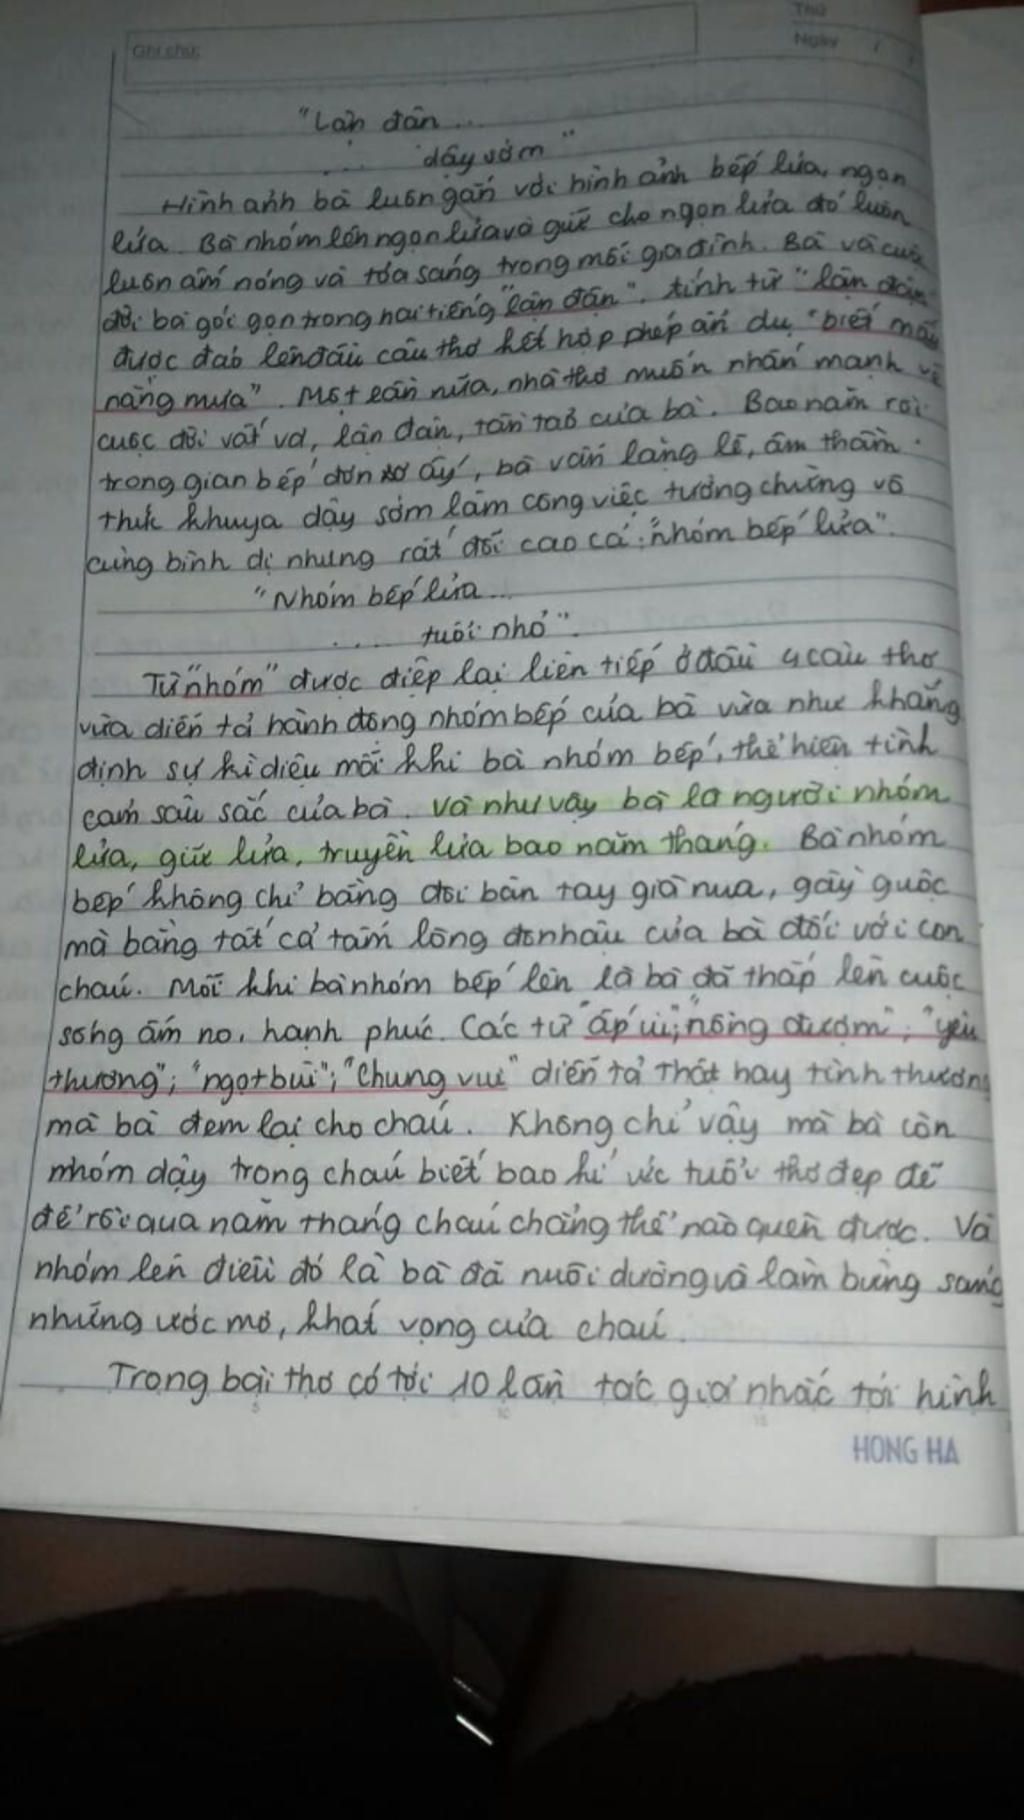 Thứ
Ghi chú:
Ngày / /
"Lận đận...
... dậy sớm"
Hình ảnh bà luôn gắn với hình ảnh bếp lửa, ngọn
lửa. Bà nhóm lên ngọn lửa và giữ cho ngọn lửa đó luôn
luôn ấm nóng và tỏa sáng trong mỗi gia đình. Bà và cuộc
đời bà gói gọn trong hai tiếng "lận đận". tính từ "lận đận"
được đảo lên đầu câu thơ kết hợp phép ẩn dụ "biết mấy
nắng mưa". Một lần nữa, nhà thơ muốn nhấn mạnh về
cuộc đời vất vả, lận đận, tần tảo của bà. Bao năm rồi
trong gian bếp đơn sơ ấy, bà vẫn lặng lẽ, âm thầm
thức khuya dậy sớm làm công việc tưởng chừng vô
cùng bình dị nhưng rất đỗi cao cả: "nhóm bếp lửa".
"Nhóm bếp lửa...
.... tuổi nhỏ".
Từ "nhóm" được điệp lại liên tiếp ở đầu 4 câu thơ
vừa diễn tả hành động nhóm bếp của bà vừa như khẳng
định sự kì diệu mỗi khi bà nhóm bếp, thể hiện tình
cảm sâu sắc của bà. Và như vậy bà là người nhóm
lửa, giữ lửa, truyền lửa bao năm tháng. Bà nhóm
bếp không chỉ bằng đôi bàn tay già nua, gầy guộc
mà bằng tất cả tấm lòng đôn hậu của bà đối với con
cháu. Mỗi khi bà nhóm bếp lên là bà đã thắp lên cuộc
sống ấm no, hạnh phúc. Các từ "ấp iu", "nồng đượm"; "yêu
thương"; "ngọt bùi"; "Chung vui" diễn tả thật hay tình thương
mà bà đem lại cho cháu. Không chỉ vậy mà bà còn
nhóm dậy trong cháu biết bao kí ức tuổi thơ đẹp đẽ
để rồi qua năm tháng cháu chẳng thể nào quên được. Và
nhóm lên điều đó là bà đã nuôi dưỡng và làm bừng sáng
những ước mơ, khát vọng của cháu.
Trong bài thơ có tới 10 lần tác giả nhắc tới hình
5 10 15
HONG HA